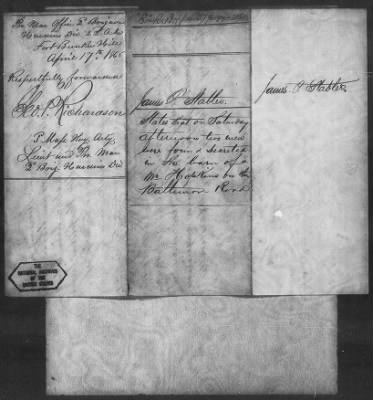 Pro Mar Office 2d Brigade
Hardins Div 22 A.C.
Fort Bunker Hill
April 17th 1865
Respectfully forwarded
Richardson
Mass Hvy Arty
Lieut and Pro Mar
2d Brig Hardins Div
James P. Stabler
States that on Saturday
afternoon two men
were found secreted
in the barn of a
Mr Hopkins on the
Baltimore Road
James P Stabler
THE
NATIONAL ARCHIVES
OF THE
UNITED STATES